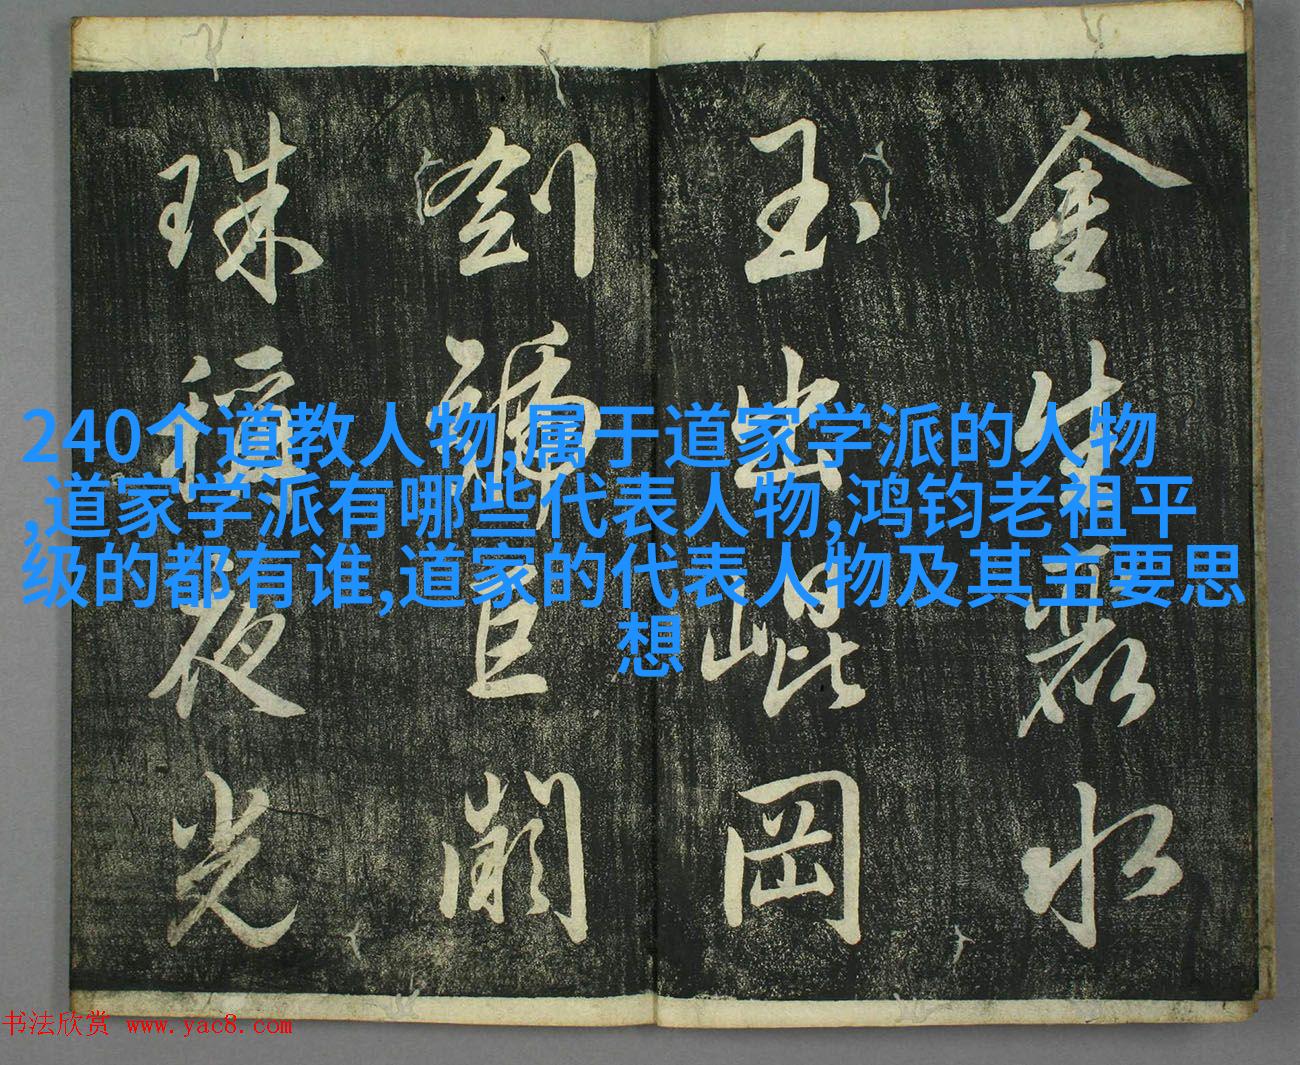 金生麗水
玉出崐岡
劍號巨闕
珠稱夜光
240个道教人物,属于道家学派的人物
,道家学派有哪些代表人物,鸿钧老祖平
级的都有谁,道家的代表人物及其主要思
想
书法欣赏 www.yac8.com